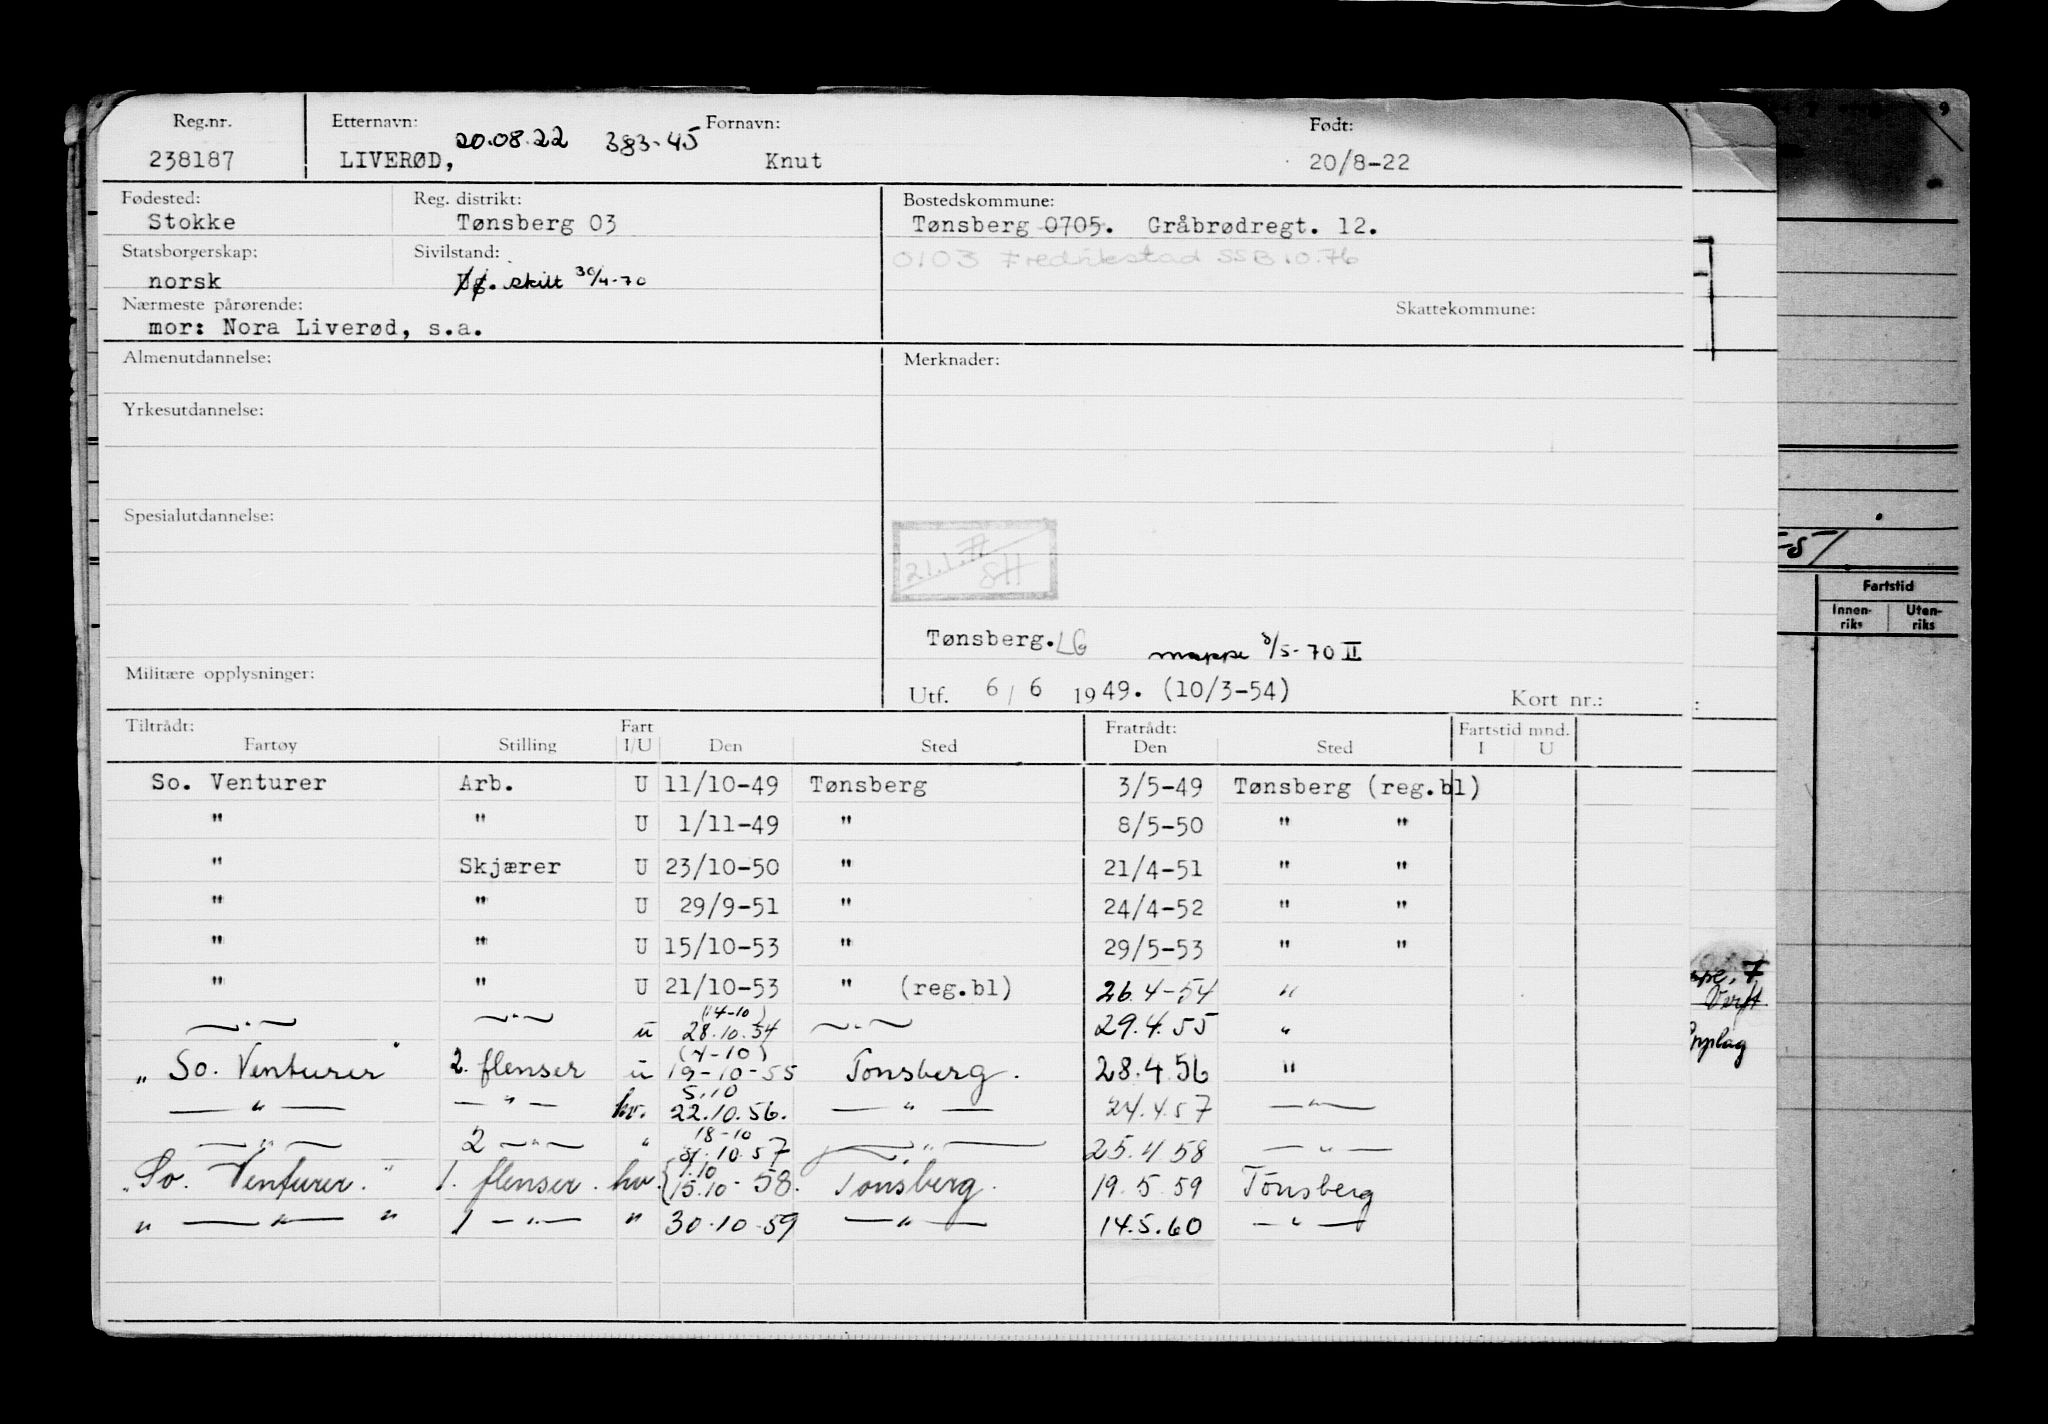 Reg.nr. Etternavn: Fornavn: Født:
20.08.22 383-45
238187 LIVERØD, Knut 20/8-22
Fødested: Reg. distrikt: Bostedskommune:
Stokke Tønsberg 03 Tønsberg 0705. Gråbrødregt. 12.
Statsborgerskap: Sivilstand: 0103 Fredrikstad SSB 10.76
norsk skilt 30/4-70
Nærmeste pårørende: Skattekommune:
mor: Nora Liverød, s.a.
Almenutdannelse: Merknader:
Yrkesutdannelse:
Spesialutdannelse:
21.1.77
SH
Tønsberg. LG mappe 8/5-70 II
Militære opplysninger:
Utf. 6/6 1949. (10/3-54) Kort nr.:
Tiltrådt: Fart Fratrådt: Fartstid mnd.
Fartøy Stilling I/U Den Sted Den Sted I U
So. Venturer Arb. U 11/10-49 Tønsberg 3/5-49 Tønsberg (reg.bl)
" " U 1/11-49 " 8/5-50 " "
" Skjærer U 23/10-50 " 21/4-51 " "
" " U 29/9-51 " 24/4-52 " "
" " U 15/10-53 " 29/5-53 " "
" " U 21/10-53 " (reg.bl) 26.4-54 "
(14-10)
—"— —"— u 28.10.54 —"— 29.4.55 "
(4-10)
"So. Venturer" 2. flenser u 19-10-55 Tønsberg. 28.4.56 "
5.10
—"— —"— hv. 22.10.56. —"— 24.4.57 —"—
18-10
—"— 2 —"— " 31.10.57 —"— 25.4.58 —"—
1.10
"So. Venturer." 1. flenser. hv. 15.10-58. Tønsberg. 19.5.59 Tönsberg
" —"— " 1 —"— " 30.10.59 —"— 14.5.60 —"—
9
-51
Fartstid
Innen-
riks
Uten-
riks
Opplag